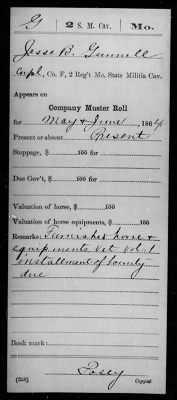 G | 2 S. M. Cav. | Mo.
Jesse B. Gunnell
Corpl, Co. F, 2 Reg't Mo. State Militia Cav.
Appears on
Company Muster Roll
for May & June, 1864
Present or absent Present
Stoppage, $ 100 for
Due Gov't, $ 100 for
Valuation of horse, $ 100
Valuation of horse equipments, $ 100
Remarks: Furnishes horse &
equipments Vet 2d & 
installment of bounty
due
Book mark:
(358) Posey
Copyist